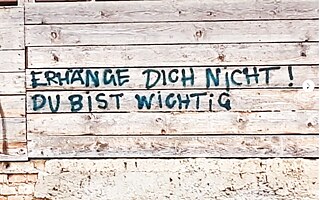 ERHÄNGE DICH NICHT!
DU BIST WICHTIG